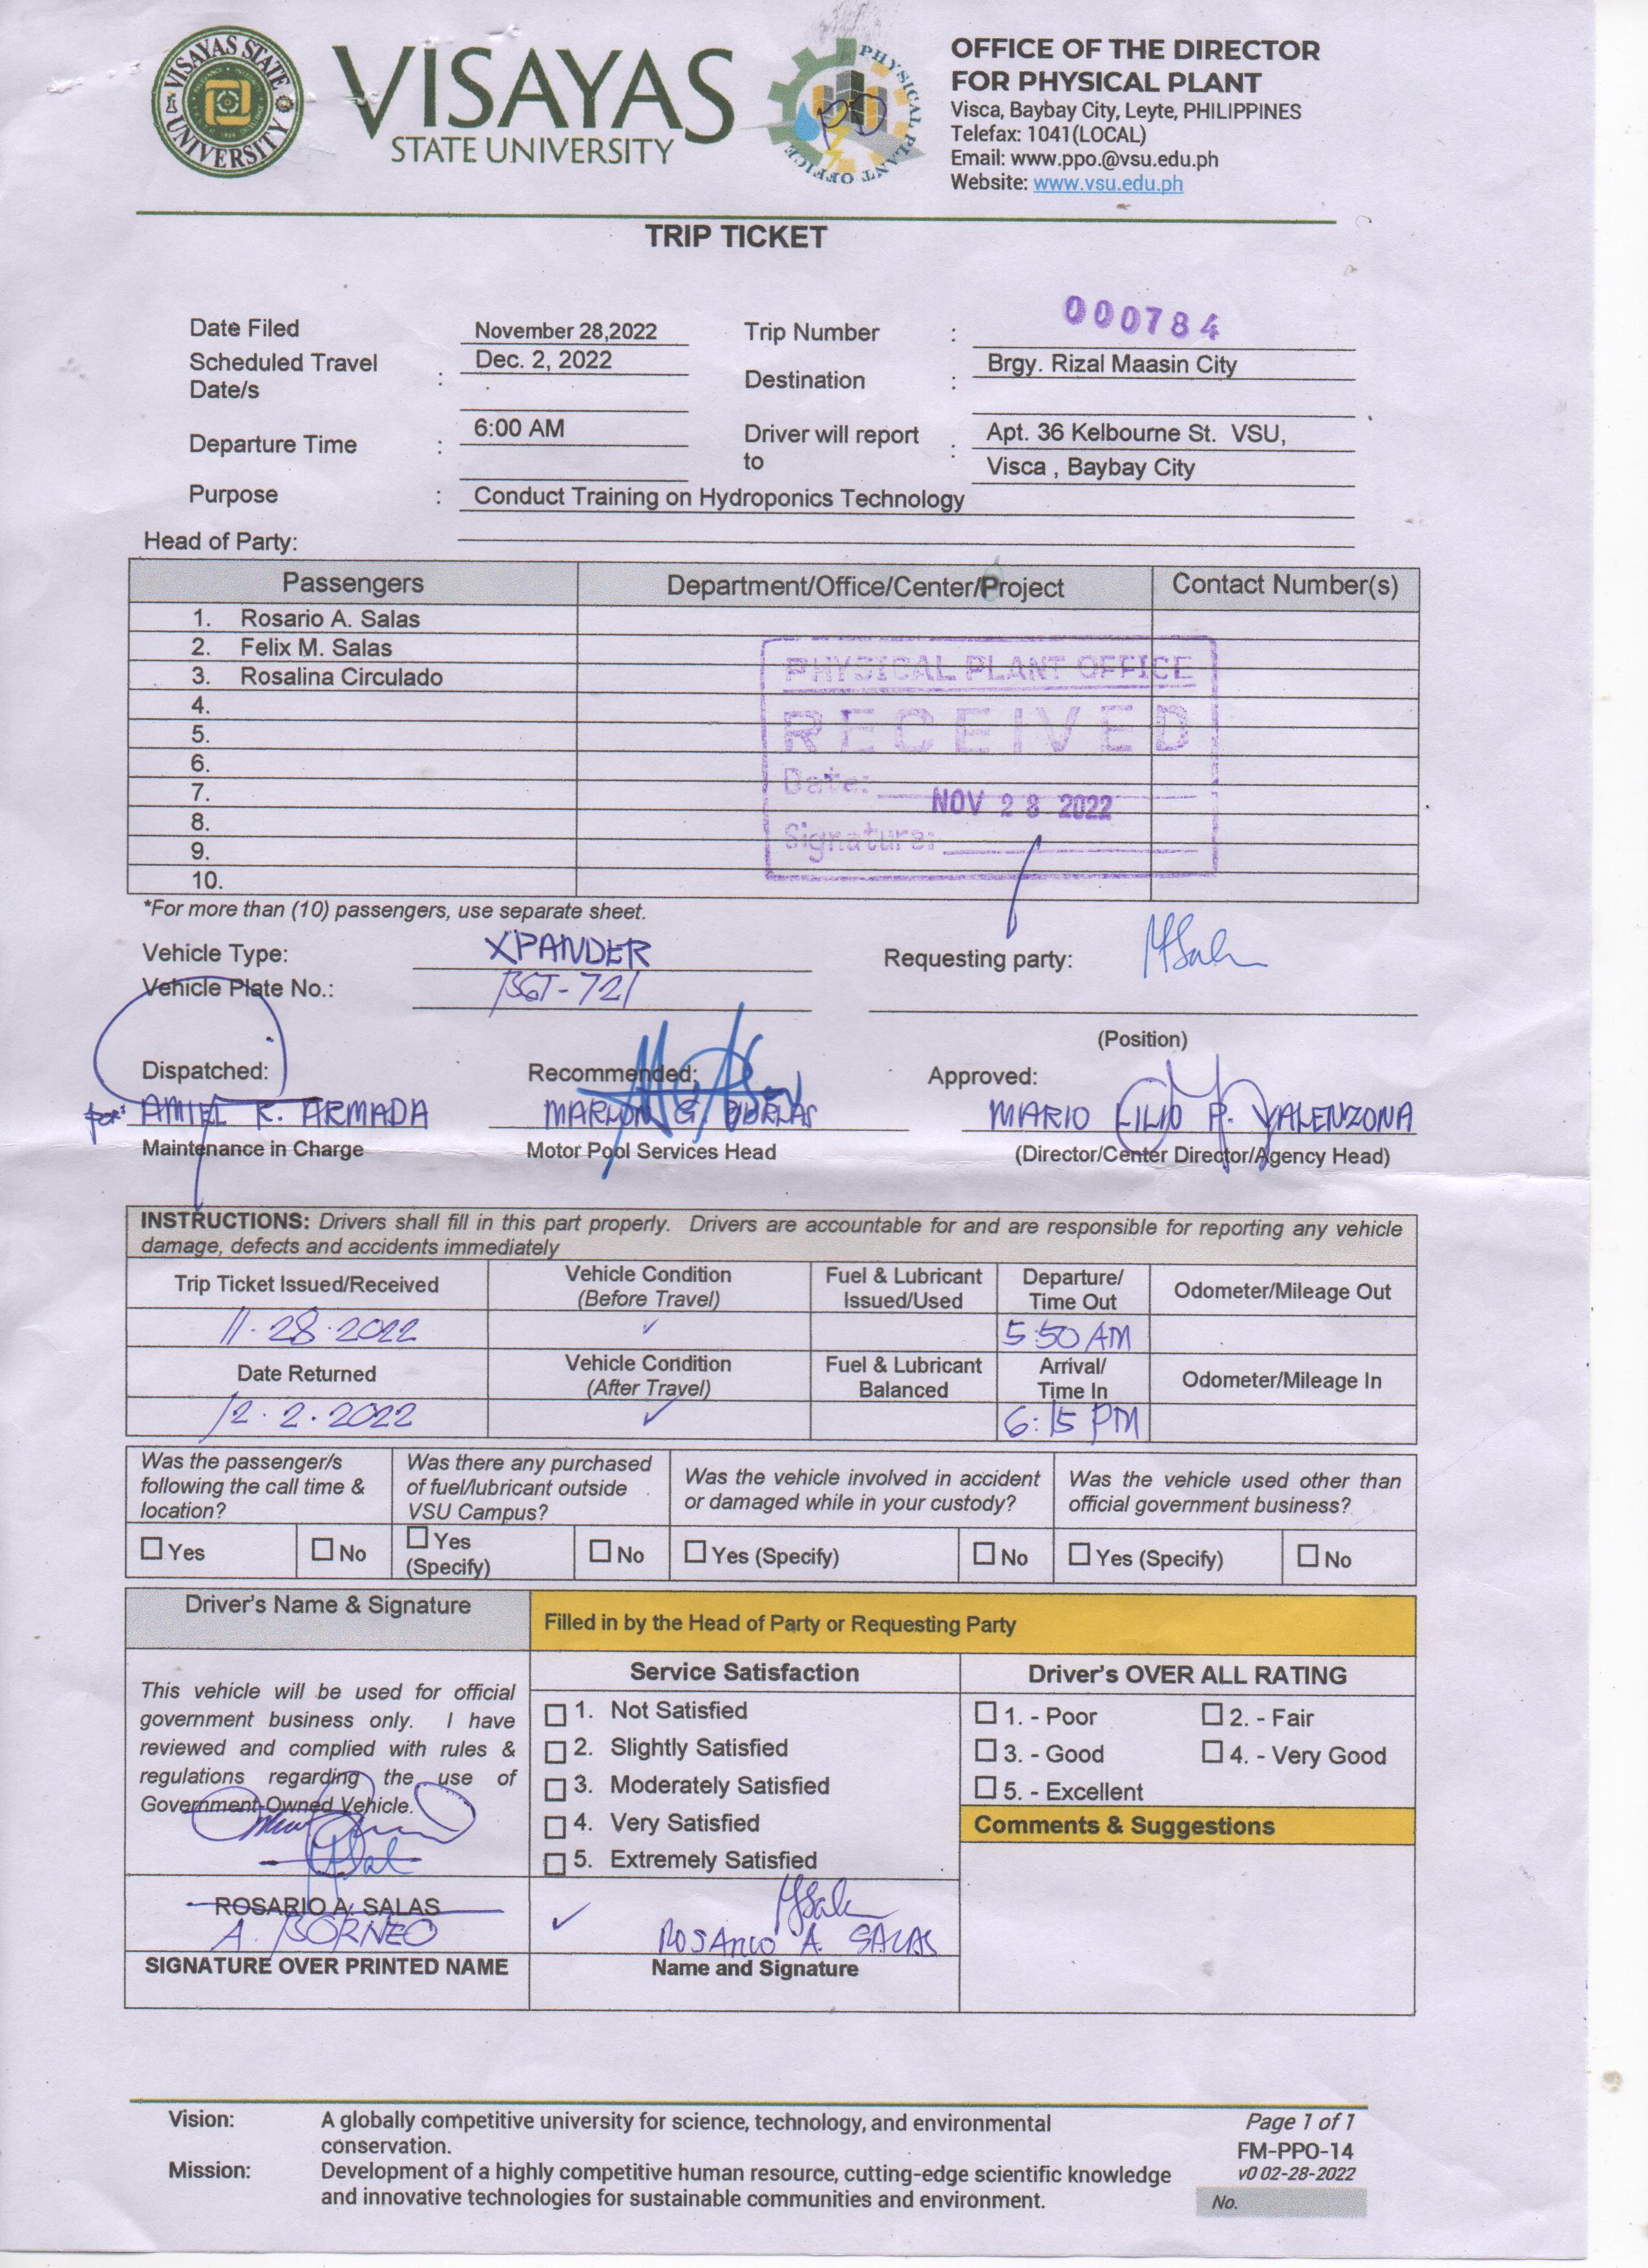 VISAYAS STATE UNIVERSITY
VISAYAS
STATE UNIVERSITY
PHYSICAL PLANT OFFICE
OFFICE OF THE DIRECTOR
FOR PHYSICAL PLANT
Visca, Baybay City, Leyte, PHILIPPINES
Telefax: 1041(LOCAL)
Email: www.ppo.@vsu.edu.ph
Website: www.vsu.edu.ph
TRIP TICKET
Date Filed November 28,2022 Trip Number : 000784
Scheduled Travel Date/s : Dec. 2, 2022 Destination : Brgy. Rizal Maasin City
Departure Time : 6:00 AM Driver will report to : Apt. 36 Kelbourne St. VSU,
Visca , Baybay City
Purpose : Conduct Training on Hydroponics Technology
Head of Party:
Passengers Department/Office/Center/Project Contact Number(s)
1. Rosario A. Salas
2. Felix M. Salas
3. Rosalina Circulado
4.
5.
6.
7.
8.
9.
10.
PHYSICAL PLANT OFFICE
RECEIVED
Date: NOV 28 2022
Signature:
*For more than (10) passengers, use separate sheet.
Vehicle Type: XPANDER Requesting party:
Vehicle Plate No.: BGT-721
(Position)
Dispatched: Recommended: Approved:
for: AMIEL R. ARMADA MARLON G. MARIO LILIO P. VALENZONA
Maintenance in Charge Motor Pool Services Head (Director/Center Director/Agency Head)
INSTRUCTIONS: Drivers shall fill in this part properly. Drivers are accountable for and are responsible for reporting any vehicle
damage, defects and accidents immediately
Trip Ticket Issued/Received Vehicle Condition (Before Travel) Fuel & Lubricant Issued/Used Departure/ Time Out Odometer/Mileage Out
11-28-2022 ✓ 5:50 AM
Date Returned Vehicle Condition (After Travel) Fuel & Lubricant Balanced Arrival/ Time In Odometer/Mileage In
12.2.2022 ✓ 6:15 PM
Was the passenger/s following the call time & location? Was there any purchased of fuel/lubricant outside VSU Campus? Was the vehicle involved in accident or damaged while in your custody? Was the vehicle used other than official government business?
☐ Yes ☐ No ☐ Yes (Specify) ☐ No ☐ Yes (Specify) ☐ No ☐ Yes (Specify) ☐ No
Driver's Name & Signature Filled in by the Head of Party or Requesting Party
This vehicle will be used for official
government business only. I have
reviewed and complied with rules &
regulations regarding the use of
Government-Owned Vehicle.
ROSARIO A. SALAS
A. BORNEO
SIGNATURE OVER PRINTED NAME
Service Satisfaction
☐ 1. Not Satisfied
☐ 2. Slightly Satisfied
☐ 3. Moderately Satisfied
☐ 4. Very Satisfied
☐ 5. Extremely Satisfied
✓ ROSARIO A. SALAS
Name and Signature
Driver's OVER ALL RATING
☐ 1. - Poor ☐ 2. - Fair
☐ 3. - Good ☐ 4. - Very Good
☐ 5. - Excellent
Comments & Suggestions
Vision: A globally competitive university for science, technology, and environmental
conservation.
Mission: Development of a highly competitive human resource, cutting-edge scientific knowledge
and innovative technologies for sustainable communities and environment.
Page 1 of 1
FM-PPO-14
v0 02-28-2022
No.